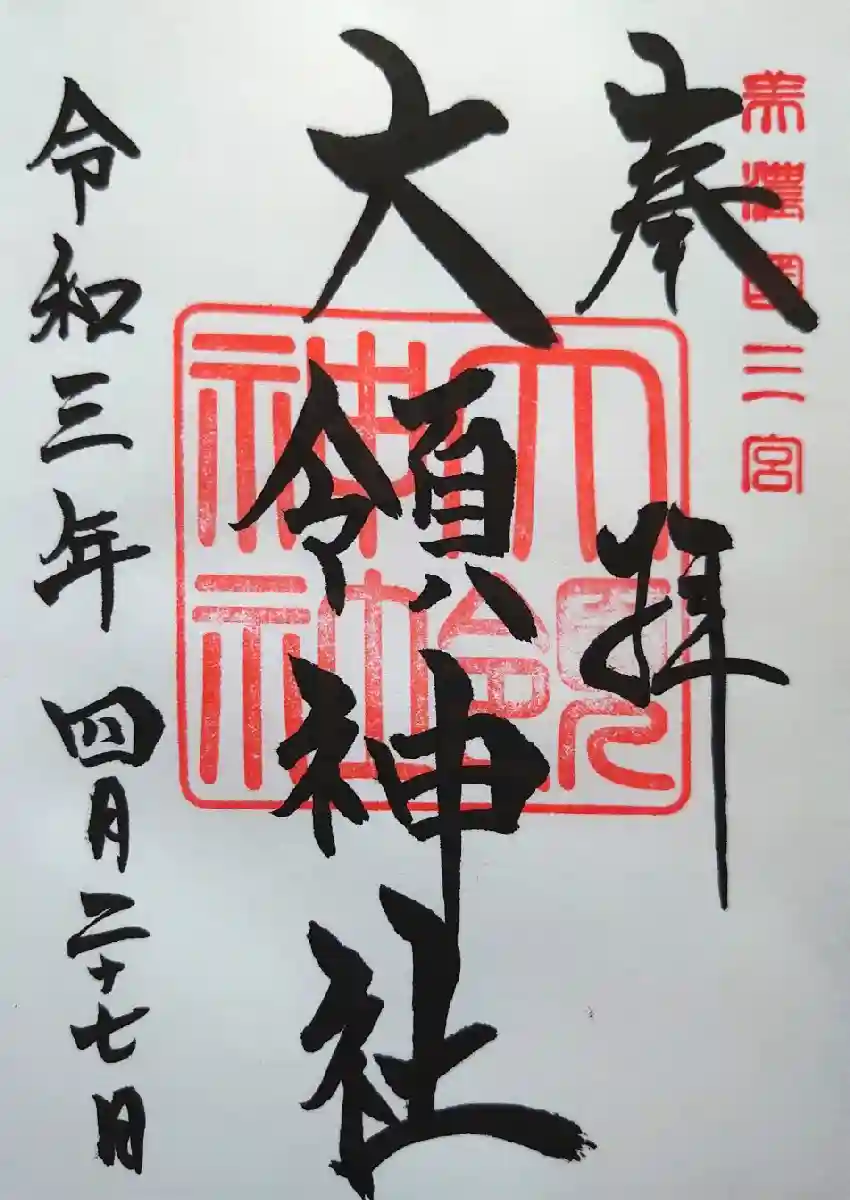 美濃國三宮
奉拝
大領神社
大領神社
令和三年四月二十七日